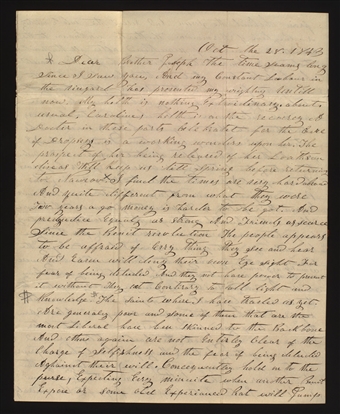 Oct the 28. 1843
Dear Brother Joseph the time seems long
since I saw you, And my Constant Labour in
the vineyard has prevented my writing untill
now my helth is nothing Extraordinary about as
usual, Caroline's helth is on the recovery. A
Docter in these parts Celebrated for the Cure
of Dropsey is a working wonders upon her. The
prospect of her being releaved of her Loathsom
disease Still keeps us till Spring before returning
to Nauvoo I find the times are very hard indeed
And quite different from what they were
two years ago money is hard to be got. And
prejudice Equaly as strong And Friends as scarce
Since the revolution The people appears
to be affraid of Every thing they see and hear
And scarce will beleive their own Eye sight For
fear of being deluded And they not have power to prevent
it without they get Contrary to all light and
Knowledge The Saints where I have traveled as yet
Are generaly poor and some of them that are the
most liberal have ben skinned to the Backbone
And others again are not Entirly Clear of the
Charge of Selfishness and the fear of being deluded
Against their will. Consequently hold on to the
purse, Expecting Every minute when another
Expose or some old Experienced Rat will